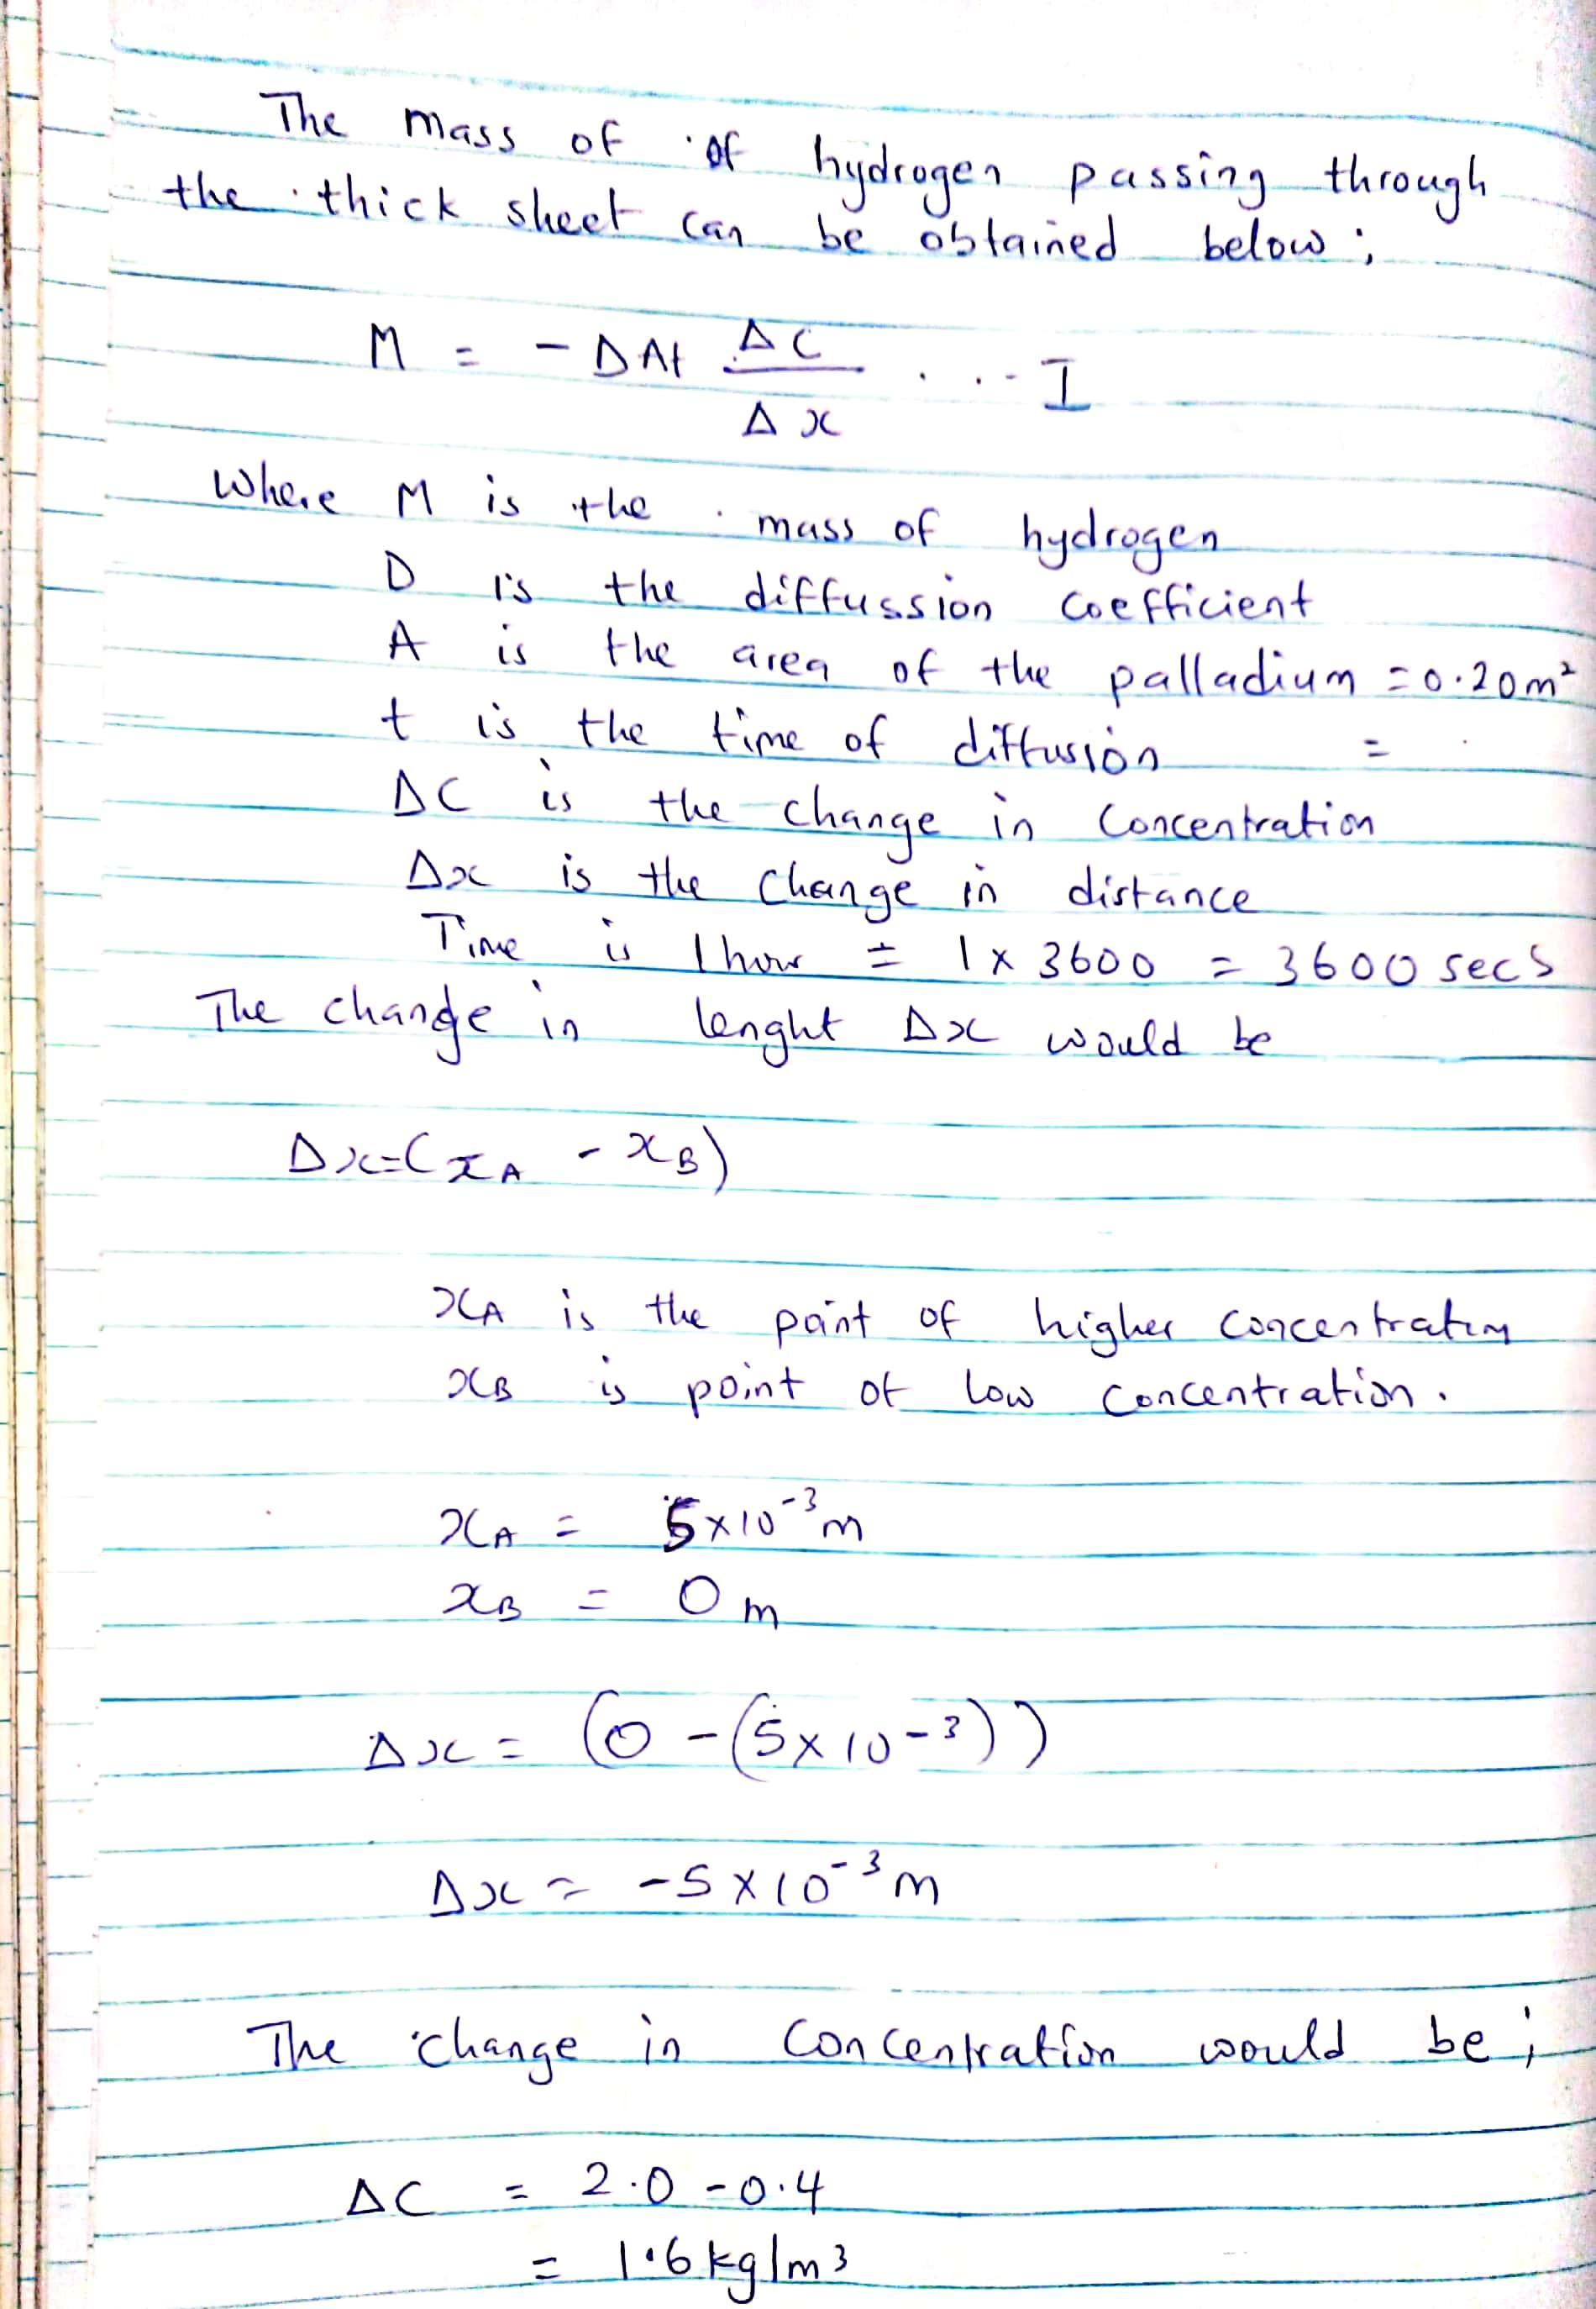 The mass of of hydrogen passing through
the thick sheet can be obtained below;
M = - DAt ΔC/Δx ... I
Where M is the mass of hydrogen
D is the diffussion coefficient
A is the area of the palladium = 0.20m²
t is the time of diffusion =
ΔC is the change in concentration
Δx is the change in distance
Time is 1 hour = 1 x 3600 = 3600 secs
The change in lenght Δx would be
Δx=(xA - xB)
xA is the point of higher concentration
xB is point of low concentration.
xA = 5x10⁻³m
xB = 0m
Δx = (0 - (5x10-³))
Δx = -5x10⁻³m
The change in concentration would be;
ΔC = 2.0 - 0.4
= 1.6kg/m3